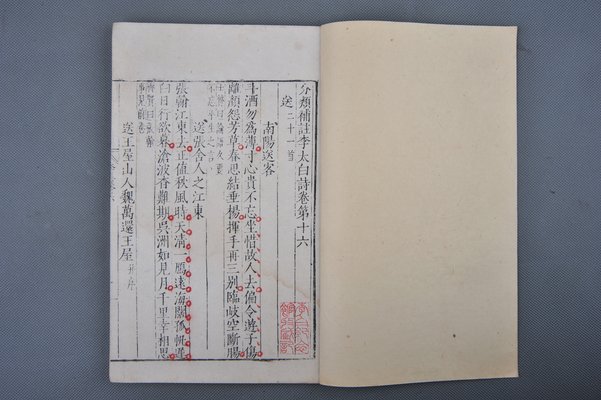 分類補註李太白詩卷第十六
送二十一首
南陽送客
斗酒勿為薄寸心貴不忘坐惜故人去偏令遊子傷
離顏怨芳草春思結垂楊揮手再三別臨岐空斷腸
送張舍人之江東
張翰江東去正值秋風時天清一鴈遠海闊孤帆遲
白日行欲暮滄波杳難期吳洲如見月千里幸相思
送王屋山人魏萬還王屋并序